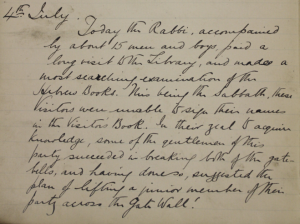 4th July.
Today the Rabbi, accompanied
by about 15 men and boys, paid a
long visit to the Library, and made a
most searching examination of the
Hebrew Books. This being the Sabbath, these
Visitors were unable to sign their names
in the Visitor's Book. In their zeal to acquire
knowledge, some of the gentlemen of this
party succeeded in breaking both of the gate
bells, and having done so, suggested the
plan of lifting a junior member of their
party across the Gate Wall!